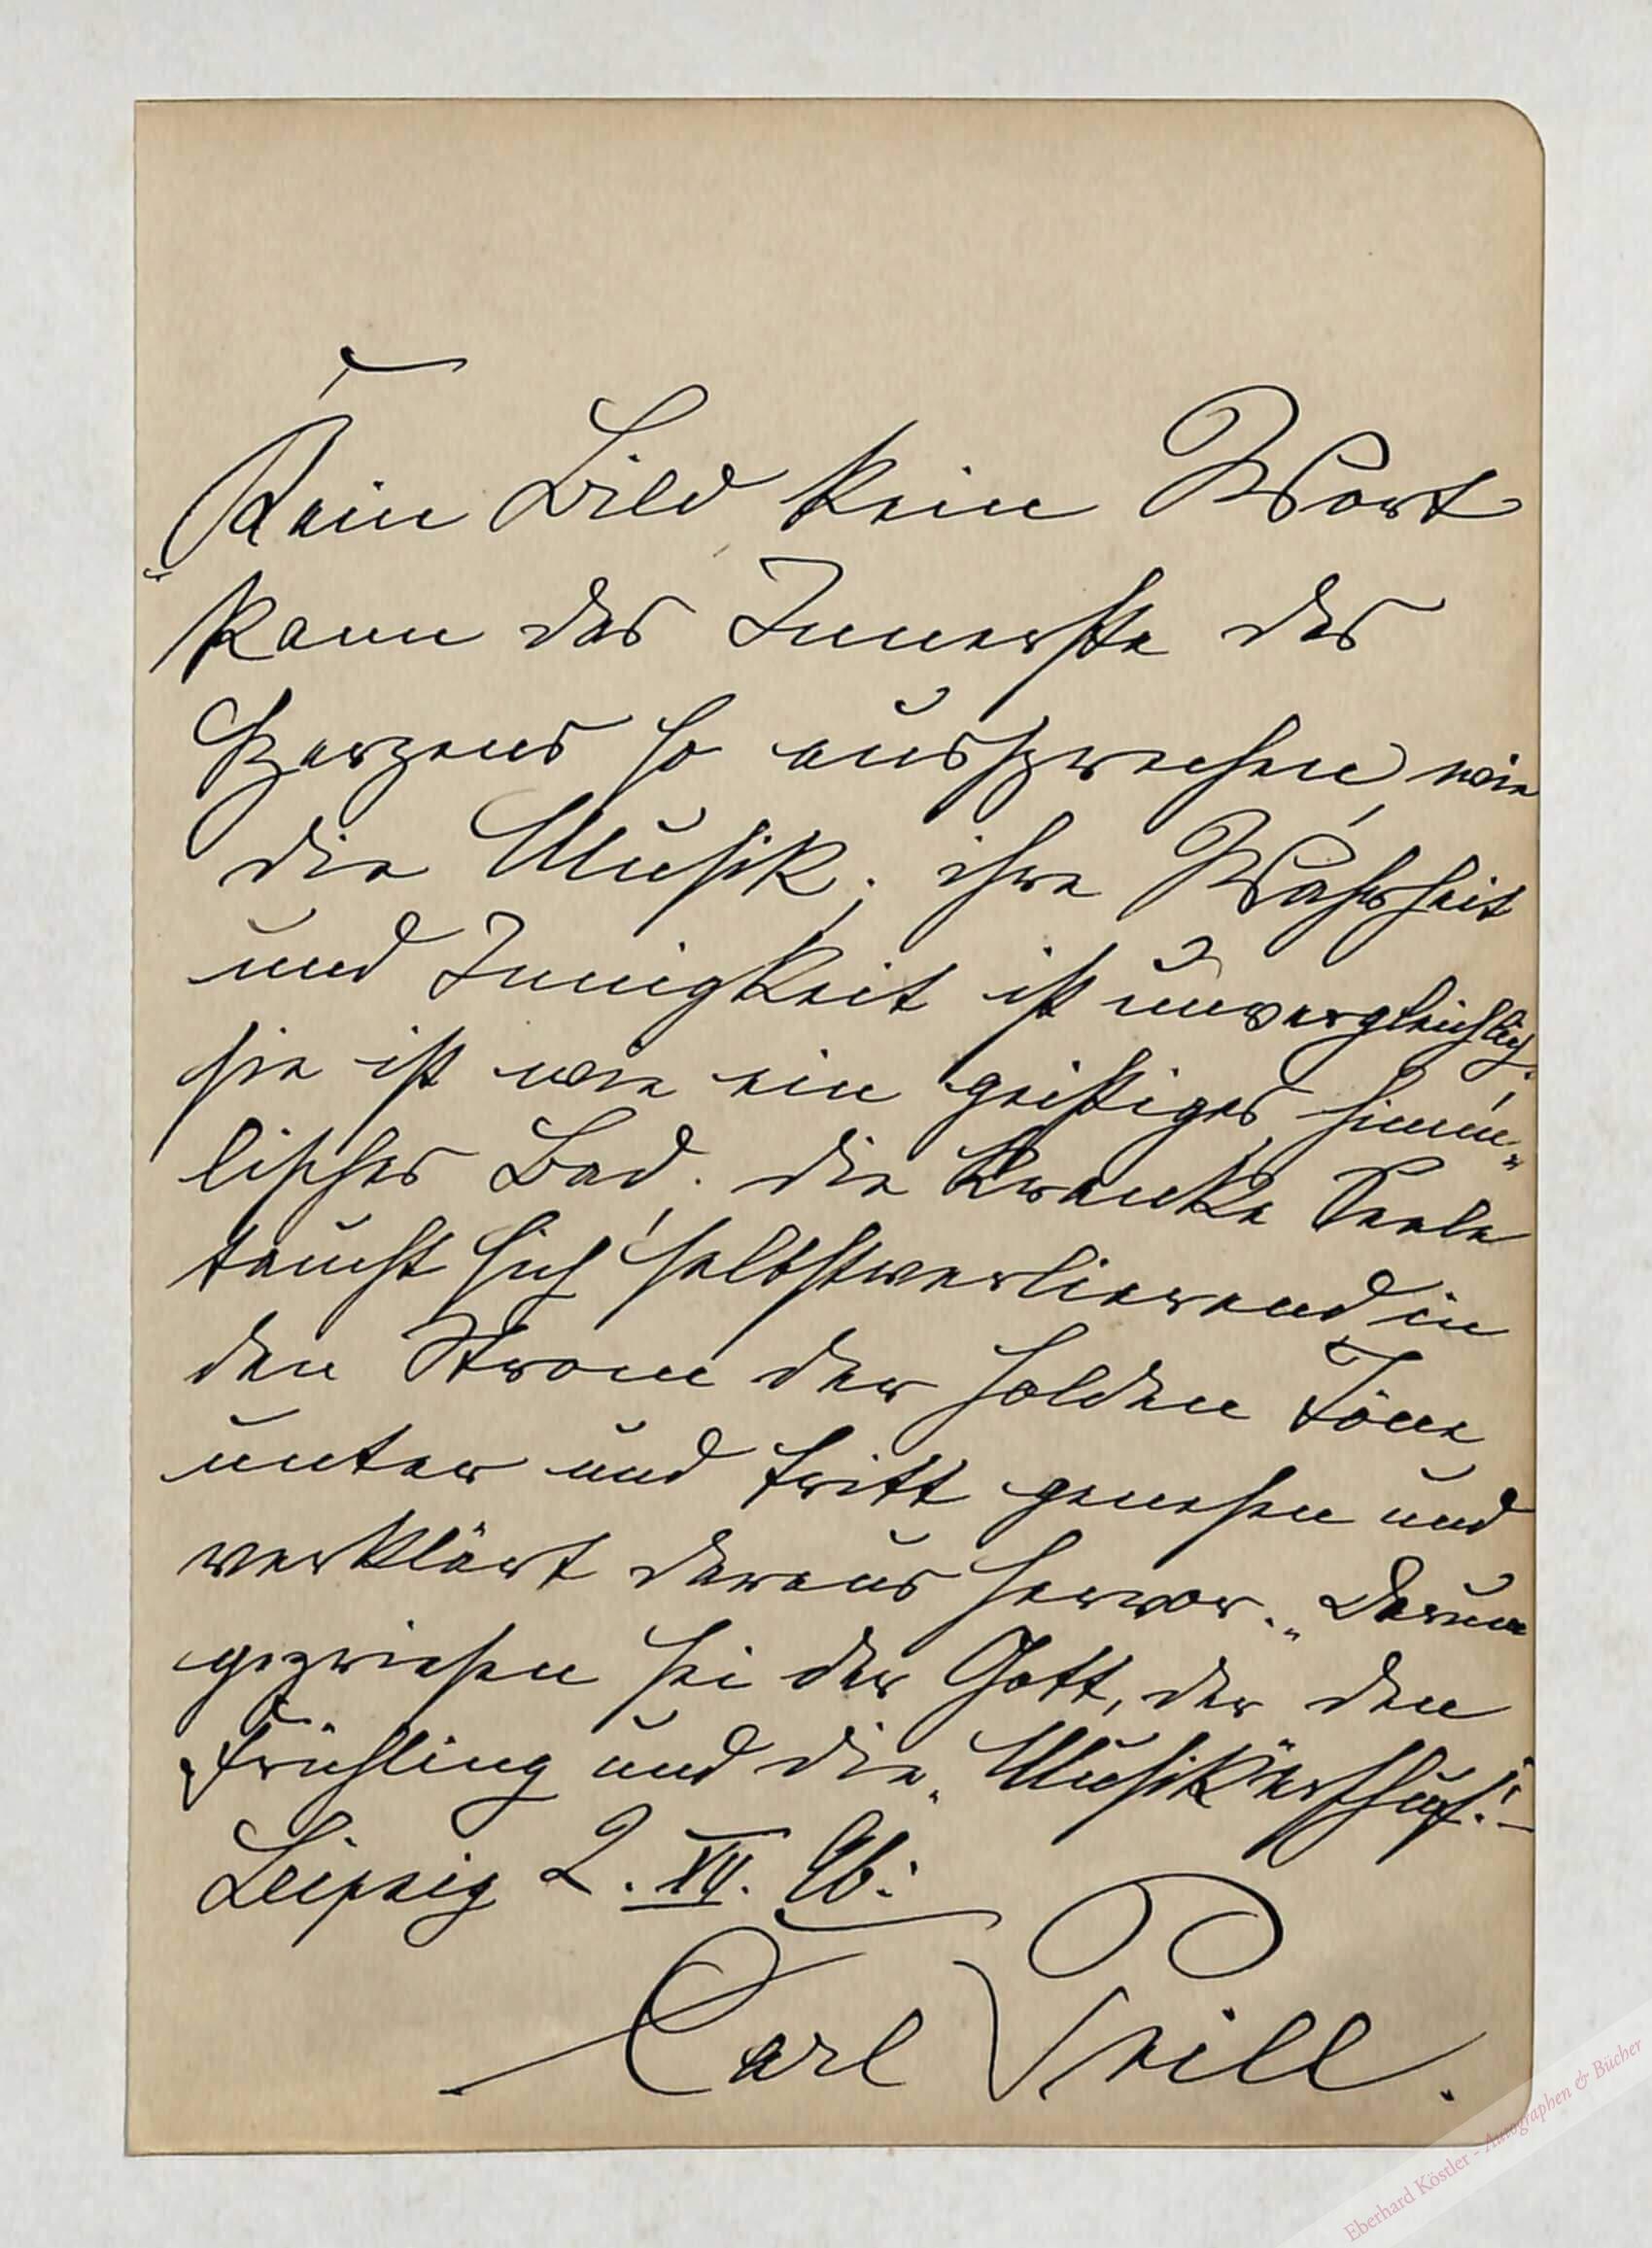 „Kein Bild kein Wort
kann das Innerste des
Herzens so aussprechen, wie
die Musik; ihre Wahrheit
und Innigkeit ist unvergleichlich,
sie ist wie ein geistiges himm„
lisches Bad. die kranke Seele
taucht sich selbstverlierend in
den Strom der holden Töne
unter und tritt genesen und
verklärt daraus hervor.„ Darum
gepriesen sei der Gott, der den
Frühling und die „Musik“ erschuf.! –
Leipzig 2. XII. 96:
Carl Prill.
Eberhard Köstler - Autographen & Bücher